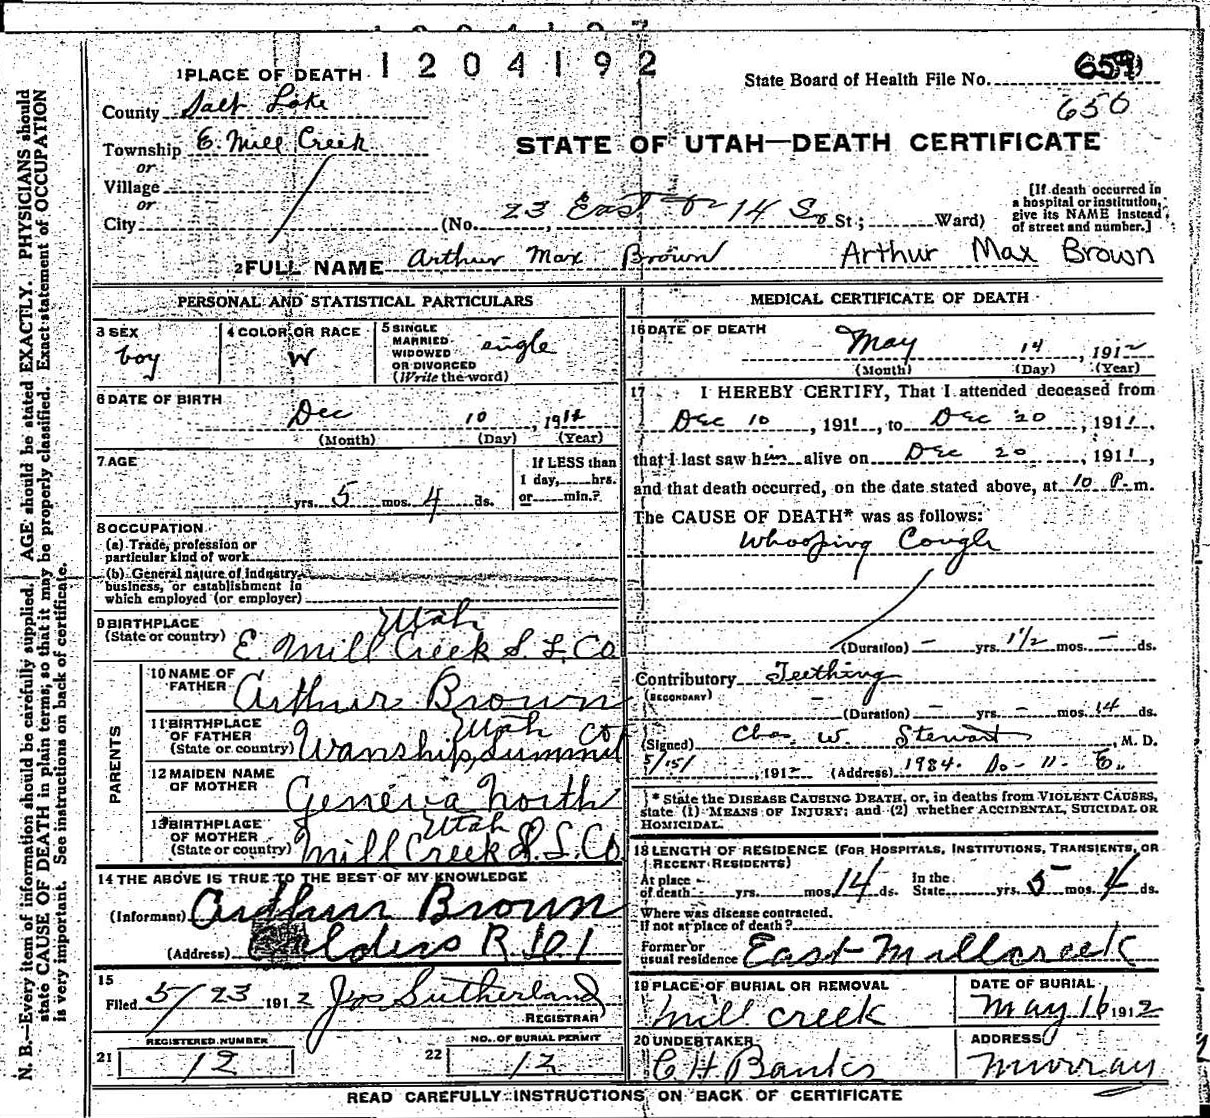 1204192
1 PLACE OF DEATH
State Board of Health File No. 659
656
County Salt Lake
Township E. Mill Creek
or
Village
or
City
STATE OF UTAH—DEATH CERTIFICATE
(No. 23 East or 14 So St.; Ward)
[If death occurred in
a hospital or institution,
give its NAME instead
of street and number.]
2 FULL NAME Arthur Max Brown Arthur Max Brown
PERSONAL AND STATISTICAL PARTICULARS
3 SEX
boy
4 COLOR OR RACE
W
5 SINGLE
MARRIED
WIDOWED
OR DIVORCED
(Write the word)
single
6 DATE OF BIRTH
Dec 10, 1911
(Month) (Day) (Year)
7 AGE
yrs. 5 mos. 4 ds.
If LESS than
1 day, hrs.
or min.?
8 OCCUPATION
(a) Trade, profession or
particular kind of work
(b) General nature of industry,
business, or establishment in
which employed (or employer)
9 BIRTHPLACE
(State or country)
Utah
E. Mill Creek S. L. Co
PARENTS
10 NAME OF
FATHER
Arthur Brown
11 BIRTHPLACE
OF FATHER
(State or country)
Utah
Wanship, Summit Co
12 MAIDEN NAME
OF MOTHER
Geneva North
13 BIRTHPLACE
OF MOTHER
(State or country)
Utah
Mill Creek S. L. Co.
14 THE ABOVE IS TRUE TO THE BEST OF MY KNOWLEDGE
(Informant) Arthur Brown
(Address) Calders R 1
15
Filed 5/23 1912 Jos Sutherland
REGISTRAR
21 REGISTERED NUMBER
12
22 NO. OF BURIAL PERMIT
12
MEDICAL CERTIFICATE OF DEATH
16 DATE OF DEATH
May 14, 1912
(Month) (Day) (Year)
17 I HEREBY CERTIFY, That I attended deceased from
Dec 10, 1911, to Dec 20, 1911,
that I last saw him alive on Dec 20, 1911,
and that death occurred, on the date stated above, at 10 P. m.
The CAUSE OF DEATH* was as follows:
Whooping Cough
(Duration) – yrs. 1 1/2 mos. – ds.
Contributory Teething
(SECONDARY)
(Duration) – yrs. – mos. 14 ds.
(Signed) Chas. W. Stewart, M. D.
5/15/, 1912 (Address) 1984. So- 11- E.
* State the DISEASE CAUSING DEATH, or, in deaths from VIOLENT CAUSES,
state (1) MEANS OF INJURY; and (2) whether ACCIDENTAL, SUICIDAL OR
HOMICIDAL.
18 LENGTH OF RESIDENCE (FOR HOSPITALS, INSTITUTIONS, TRANSIENTS, OR
RECENT RESIDENTS)
At place
of death yrs. mos. 14 ds.
In the
State yrs. 5 mos. 4 ds.
Where was disease contracted.
If not at place of death?
Former or
usual residence East Millcreek
19 PLACE OF BURIAL OR REMOVAL
Mill creek
DATE OF BURIAL
May 16 1912
20 UNDERTAKER
C H Banks
ADDRESS
Murray
READ CAREFULLY INSTRUCTIONS ON BACK OF CERTIFICATE
N. B.—Every item of information should be carefully supplied. AGE should be stated EXACTLY. PHYSICIANS should
state CAUSE OF DEATH in plain terms, so that it may be properly classified. Exact statement of OCCUPATION
is very important. See instructions on back of certificate.